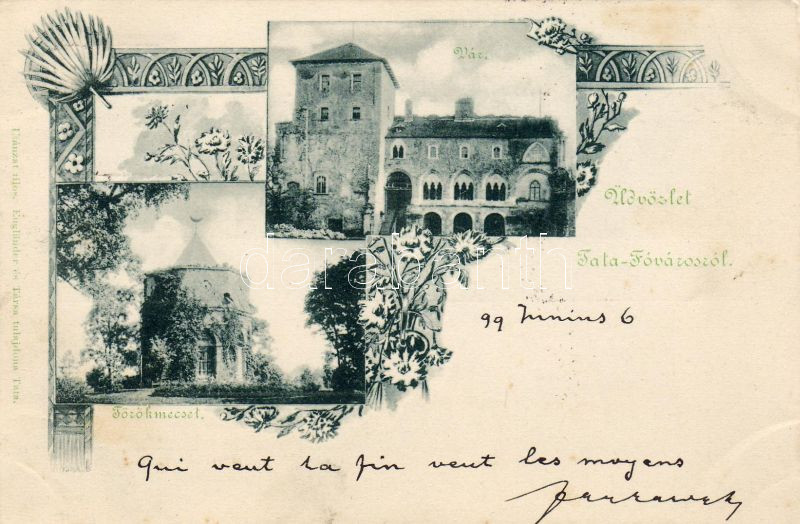 Vár.
Üdvözlet
Tata-Fóvárosról.
99 Junius 6
Törökmecset.
Utánzat tilos. Engländer és Társa tulajdona Tata.
darabanth
Qui veut la fin veut les moyens